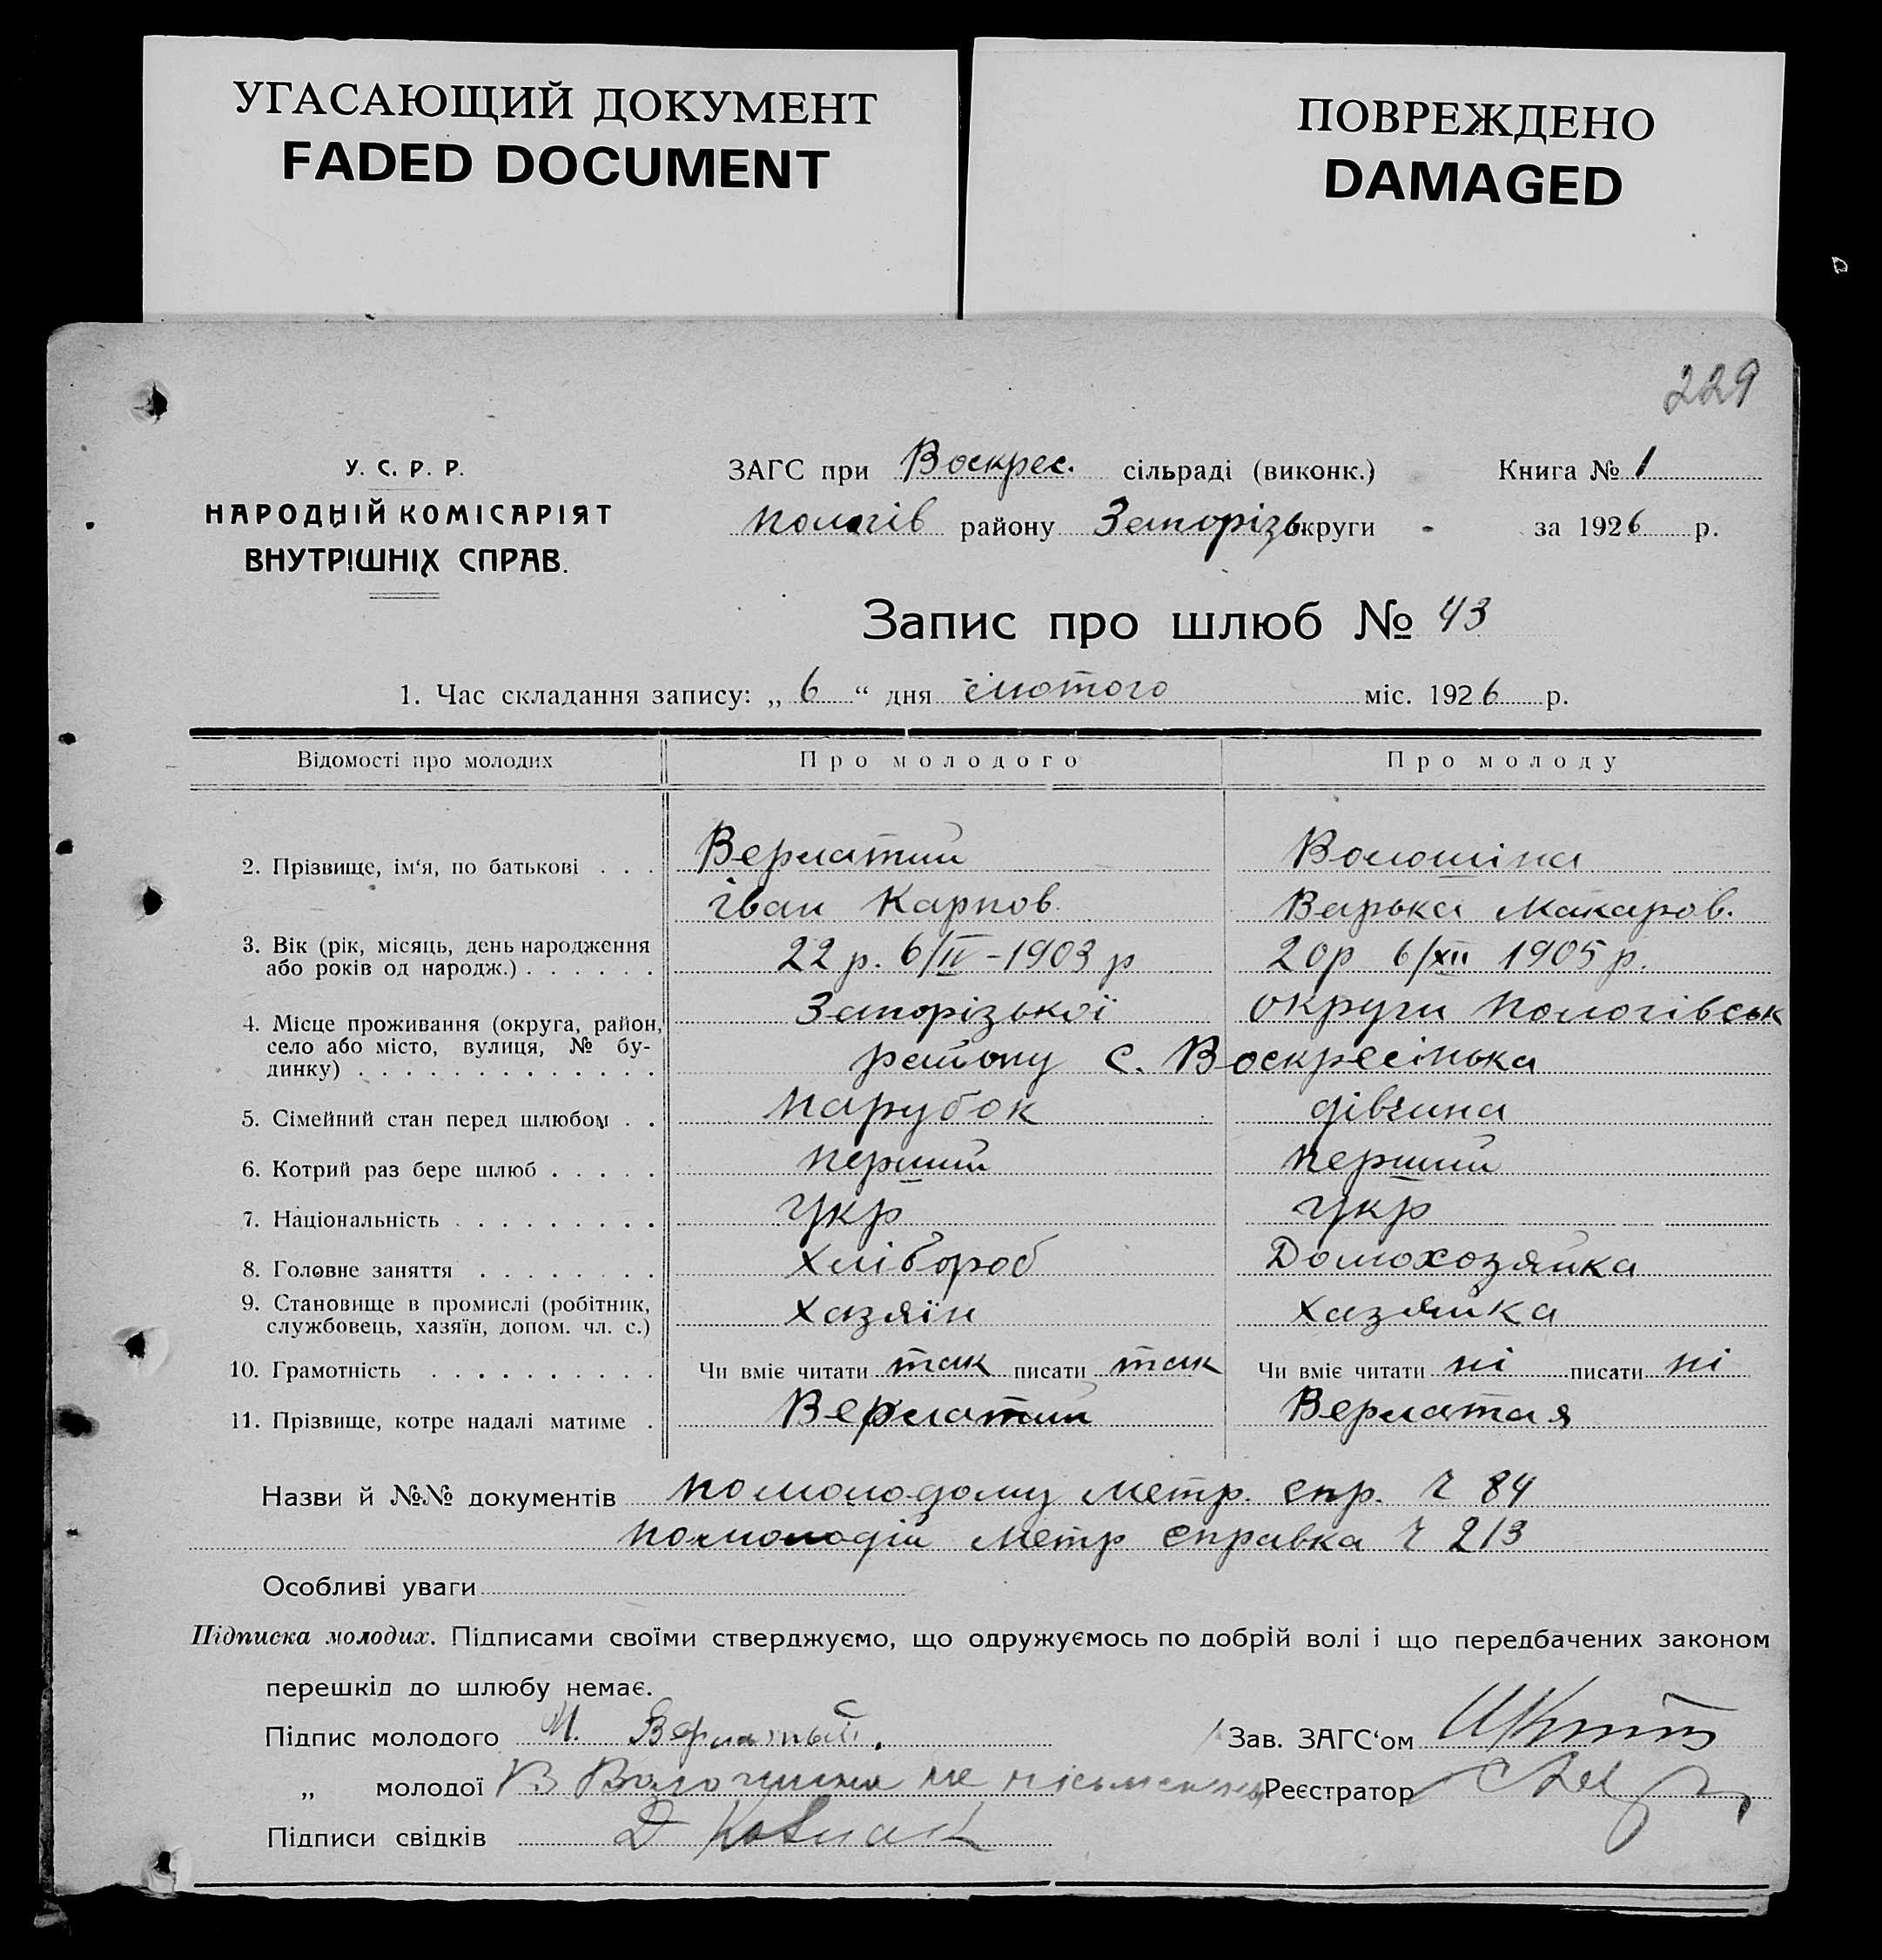 УГАСАЮЩИЙ ДОКУМЕНТ
FADED DOCUMENT
ПОВРЕЖДЕНО
DAMAGED
229
У. С. Р. Р.
НАРОДНІЙ КОМІСАРІЯТ
ВНУТРІШНІХ СПРАВ.
ЗАГС при Воскрес. сільраді (виконк.) Книга № 1
Пологів району Запорізь округи за 1926 р.
Запис про шлюб № 43
1. Час складання запису: „ 6 “ дня лютого міс. 1926 р.
Відомості про молодих Про молодого Про молоду
2. Прізвище, ім‘я, по батькові . . . Верлатий Волошіна
іван Карпов. Варька Макаров.
3. Вік (рік, місяць, день народження
або років од народж.) . . . . . . 22 р. 6/IV – 1903 р 20р 6/XII 1905 р.
4. Місце проживання (округа, район, Запорізької округи Пологівськ
село або місто, вулиця, № бу-
динку) . . . . . . . . . . . . . району с. Воскресінька
5. Сімейний стан перед шлюбом . . парубок дівчина
6. Котрий раз бере шлюб . . . . . перший перший
7. Національність . . . . . . . . . укр укр
8. Головне заняття . . . . . . . . хлібороб Домохозяйка
9. Становище в промислі (робітник,
службовець, хазяїн, допом. чл. с.) хазяїн хазяйка
10. Грамотність . . . . . . . . . . Чи вміє читати так писати так Чи вміє читати ні писати ні
11. Прізвище, котре надалі матиме . Верлатий Верлатая
Назви й №№ документів по молодому метр. спр. Ч 84
по молодій метр справка Ч 213
Особливі уваги
Підписка молодих. Підписами своїми стверджуємо, що одружуємось по добрій волі і що передбачених законом
перешкід до шлюбу немає.
Підпис молодого И. Верлатый. Зав. ЗАГС‘ом
„ молодої В Волошина не письменна Реєстратор
Підписи свідків Д